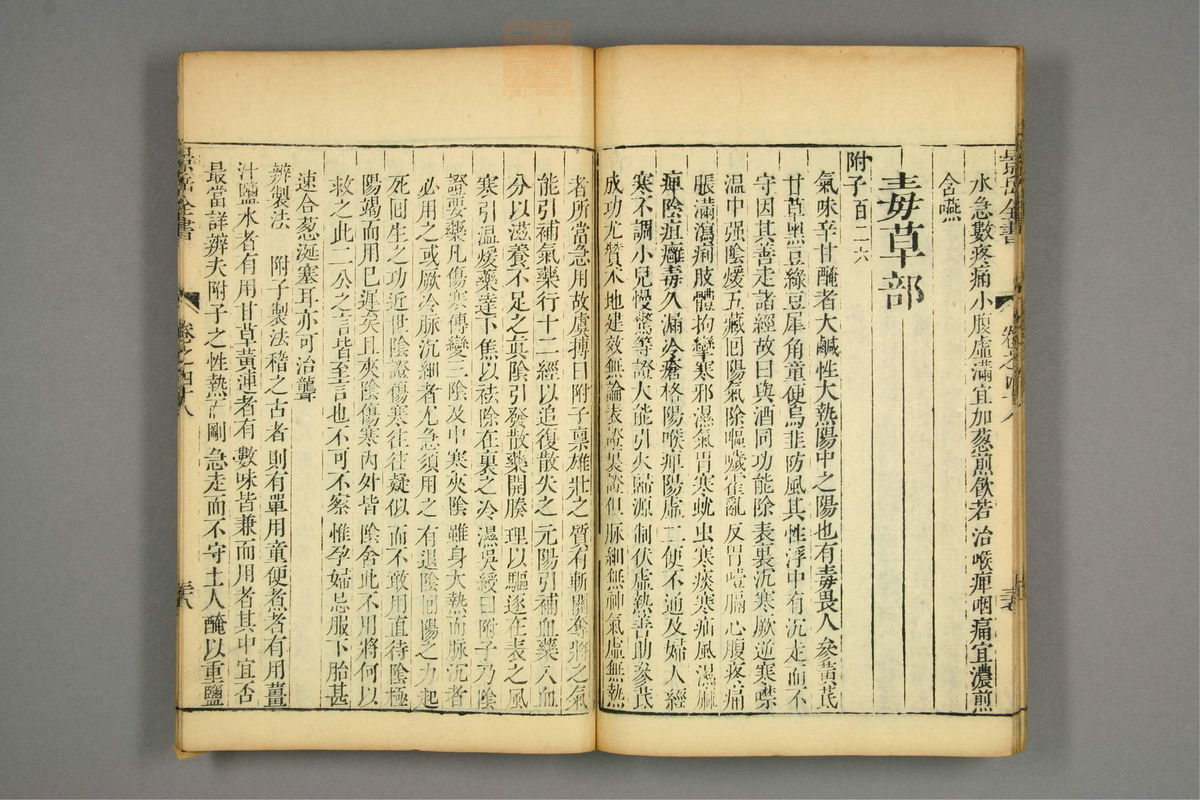 景岳全書 卷之四十八
水急數疼痛小腹虛滿宜加葱煎飲若治喉痺咽痛宜濃煎
含嚥
毒草部
附子百二六
氣味辛甘醃者大鹹性大熱陽中之陽也有毒畏人參黃芪
甘草黑豆綠豆犀角童便烏韭防風其性浮中有沉走而不
守因其善走諸經故曰與酒同功能除表裏沉寒厥逆寒噤
溫中强陰煖五藏囘陽氣除嘔噦霍亂反胃噎膈心腹疼痛
脹滿瀉痢肢體拘攣寒邪濕氣胃寒蚘虫寒痰寒疝風濕麻
痺陰疽癰毒久漏冷瘡格陽喉痺陽虛二便不通及婦人經
寒不調小兒慢驚等證大能引火歸源制伏虛熱善助參芪
成功尤贊术地建效無論表證裏證但脉細無神氣虛無熱
者所當急用故虞摶曰附子禀雄壯之質有斬關奪將之氣
能引補氣藥行十二經以追復散失之元陽引補血藥入血
分以滋養不足之眞陰引發散藥開腠理以驅逐在表之風
寒引温煖藥達下焦以祛除在裏之冷濕吳綬曰附子乃陰
證要藥凡傷寒傳變三陰及中寒夾陰雖身大熱而脉沉者
必用之或厥冷脉沉細者尤急須用之有退陰囘陽之力起
死囘生之功近世陰證傷寒往往疑似而不敢用直待陰極
陽竭而用已遲矣且夾陰傷寒內外皆陰舍此不用將何以
救之此二公之言皆至言也不可不察惟孕婦忌服下胎甚
速合葱涎塞耳亦可治聾
辨製法 附子製法稽之古者則有單用童便煮者有用薑
汁鹽水者有用甘草黃連者有數味皆兼而用者其中宜否
最當詳辨夫附子之性熱而剛急走而不守土人醃以重鹽
景岳全書 卷之四十八 三十八